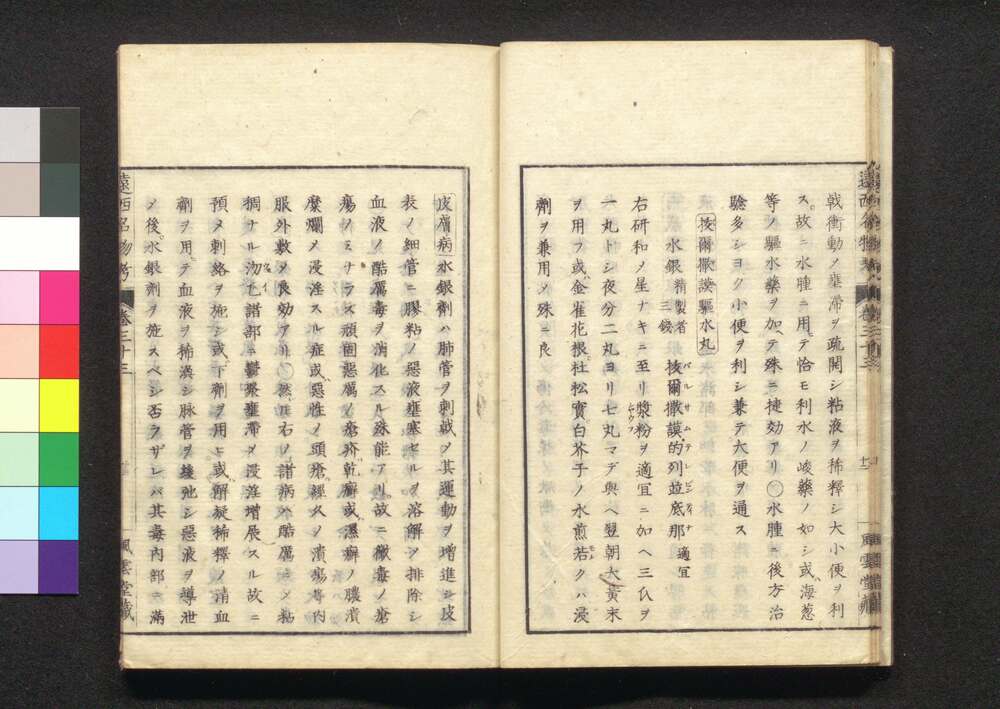 戟衝動ノ壅滞ヲ疏開シ粘液ヲ稀釋シ大小便ヲ利
ス故ニ水腫ニ用テ恰モ利水ノ峻藥ノ如シ或ハ海葱
等ノ驅水藥ヲ加ヘテ殊ニ捷効アリ〇水腫 後方治
驗多シヨク小便ヲ利シ兼テ大便ヲ通ス
按爾撒謨驅水丸
水銀 精製者 三錢 拔爾撒謨的列並底那 適宜
バルサムテレビンテイナ
右研和メ星ナキニ至リ漿粉ヲ適宜ニ加ヘ三仏ヲ
一丸トシ夜分二丸ヨリ七丸マデ與ヘ翌朝大黃末
ヲ用フ或ハ金雀花根杜松實白芥子ノ水煎若クハ浸
劑ヲ兼用メ殊ニ良
十
風雲堂藏
皮膚病 水銀劑ハ肺管ヲ刺戟メ其運動ヲ增進シ皮
表ノ細管ニ膠粘ノ惡液壅塞セルヲ溶解シ排除シ
血液ノ酷厲毒ヲ消化スル殊能アリ故ニ黴毒ノ瘡
瘍ノミナラズ頑固惡厲ノ瘡疥乾癬或ハ濕癬ノ膿潰
糜爛メ浸淫スル症或ハ惡性ノ頭瘡經久ノ潰瘍等内
服外敷メ良効アリ〇然 右ノ諸病 酷厲ニメ粘
稠ナル汚 諸部ニ鬱聚壅滞メ浸淫增展スル故ニ
預メ刺絡ヲ施シ或ハ下劑ヲ用ヒ或ハ解凝稀釋ノ淸血
劑ヲ用テ血液ヲ稀渙シ脉管ヲ緩弛シ惡液ヲ導泄
メ後水銀劑ヲ施スベシ否ラザレバ其毒內部ニ滿
遠西名物考 卷三十三
風雲堂藏